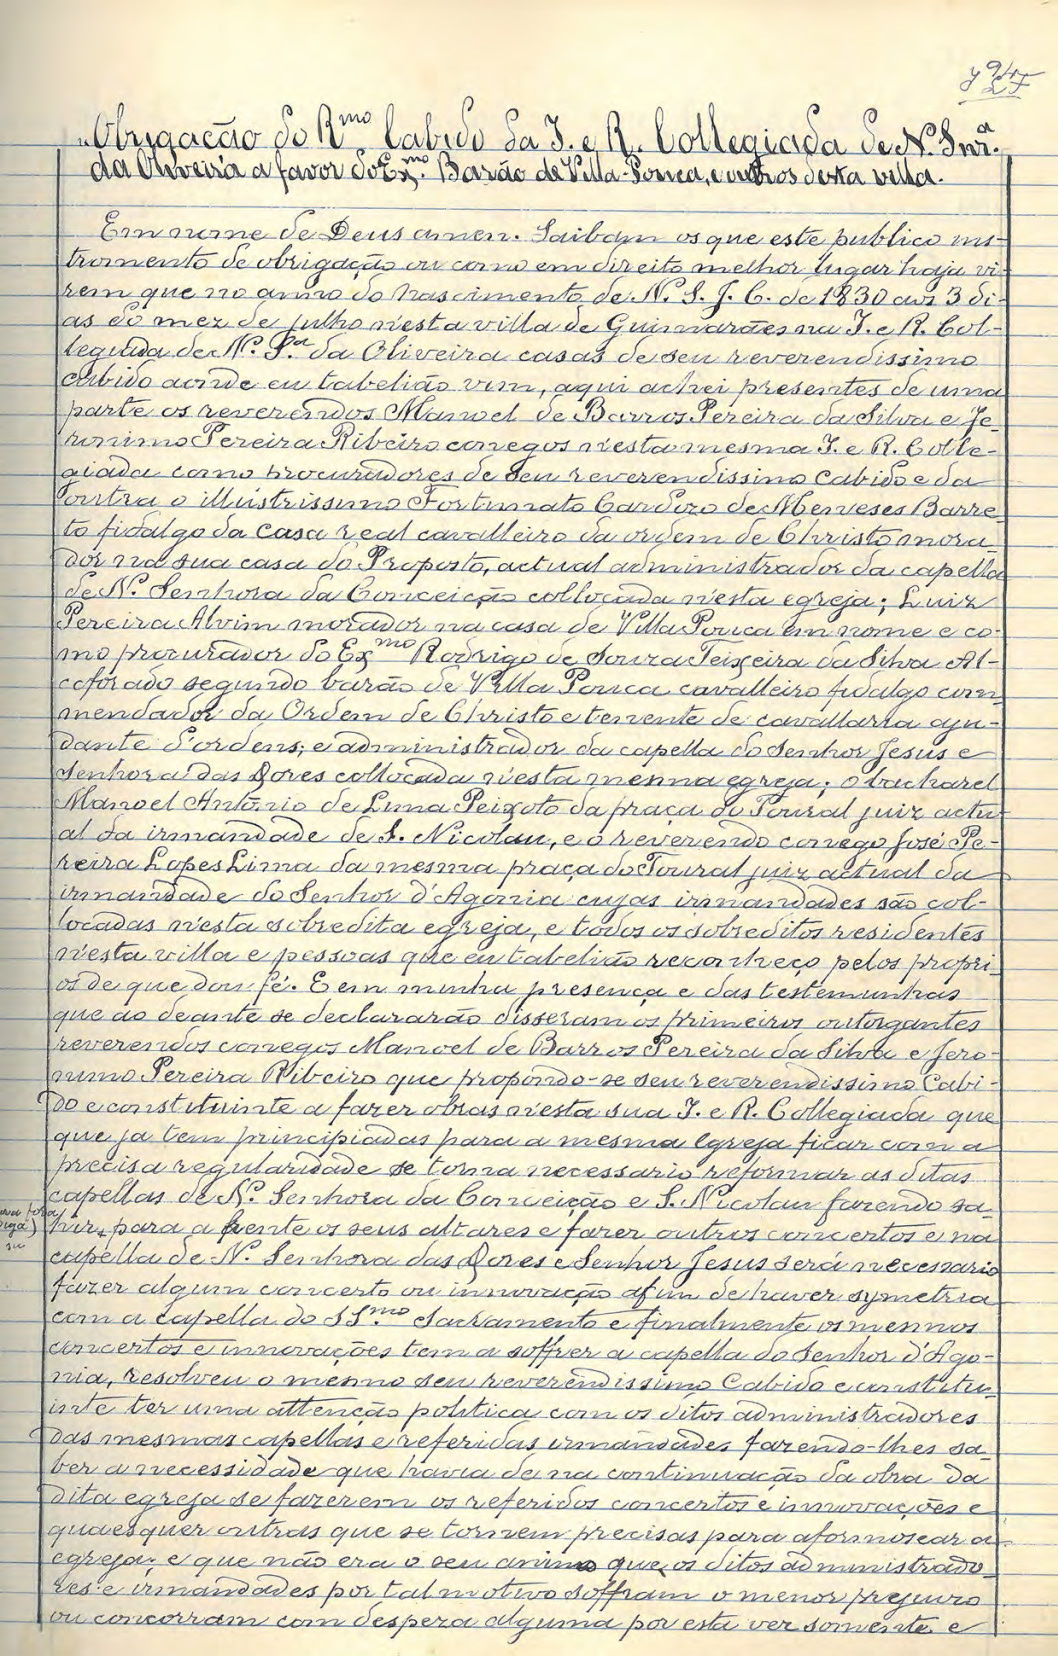 Obrigação do Rmo Cabido da I. e R. Collegiada de N. Snrª.
da Oliveira a favor do Exmo. Barão de Villa-Pouca, e outros desta villa.
Em nome de Deus amen. Saibam os que este publico ins-
tromento de obrigação ou como em direito melhor lugar haja vi-
rem que no anno do nascimento de N. S. J. C. de 1830 aos 3 di-
as do mez de julho n'esta villa de Guimarães na I. e R. Col-
legiada de N. S.ª da Oliveira casas de seu reverendissimo
cabido aonde eu tabelião vim, aqui achei presentes de uma
parte os reverendos Manoel de Barros Pereira da Silva e Je-
ronimo Pereira Ribeiro conegos n'esta mesma I. e R. Colle-
giada como procuradores de seu reverendissimo Cabido e da
outra o illustrissimo Fortunato Cardozo de Menezes Barre-
to fidalgo da casa real cavalleiro da ordem de Christo mora-
dor na sua casa do Proposto, actual administrador da capella
de N. Senhora da Conceição collocada n'esta egreja; Luiz
Pereira Alvim morador na casa de Villa Pouca em nome e co-
mo procurador do Exmo Rodrigo de Souza Teixeira da Silva Al-
coforado segundo barão de Villa Pouca cavalleiro fidalgo com-
mendador da Ordem de Christo e tenente de cavallaria aju-
dante d'ordens; e administrador da capella do Senhor Jesus e
Senhora das Dores collocada n'esta mesma egreja; o bacharel
Manoel António de Lima Peixoto da praça do Toural juiz actu-
al da irmandade de S. Nicolau, e o reverendo conego José Pe-
reira Lopes Lima da mesma praça do Toural juiz actual da
irmandade do Senhor d'Agonia cujas irmandades são col-
locadas n'esta sobredita egreja, e todos os sobreditos residentes
n'esta villa e pessoas que eu tabelião reconheço pelos propri-
os de que dou fé. E em minha presença e das testemunhas
que ao deante se declararão disseram os primeiros outorgantes
reverendos conegos Manoel de Barros Pereira da Silva e Jero-
nimo Pereira Ribeiro que propondo-se seu reverendissimo Cabi-
do e constituinte a fazer obras n'esta sua I. e R. Collegiada que
que ja tem principiadas para a mesma egreja ficar com a
precisa regularidade se torna necessario reformar as ditas
capellas de N. Senhora da Conceição e S. Nicolau fazendo sa-
hir, para a frente os seus altares e fazer outros concertos e na
capella de N. Senhora das Dores e Senhor Jesus será necessario
fazer algum concerto ou innovação afim de haver symetria
com a capella do SSmo Sacramento e finalmente os mesmos
concertos e innovações tem a soffrer a capella do Senhor d'Ago-
nia, resolveu o mesmo seu reverendissimo Cabido e constitu-
inte ter uma attenção politica com os ditos administradores
das mesmas capellas e referidas irmandades fazendo-lhes sa-
ber a necessidade que havia de na continuação da obra da
dita egreja se fazerem os referidos concertos e innovações e
quaesquer outras que se tornem precisas para aformosear a
egreja; e que não era o seu animo que os ditos administrado-
res e irmandades por tal motivo soffram o menor prejuizo
ou concorram com despeza alguma por esta vez somente e